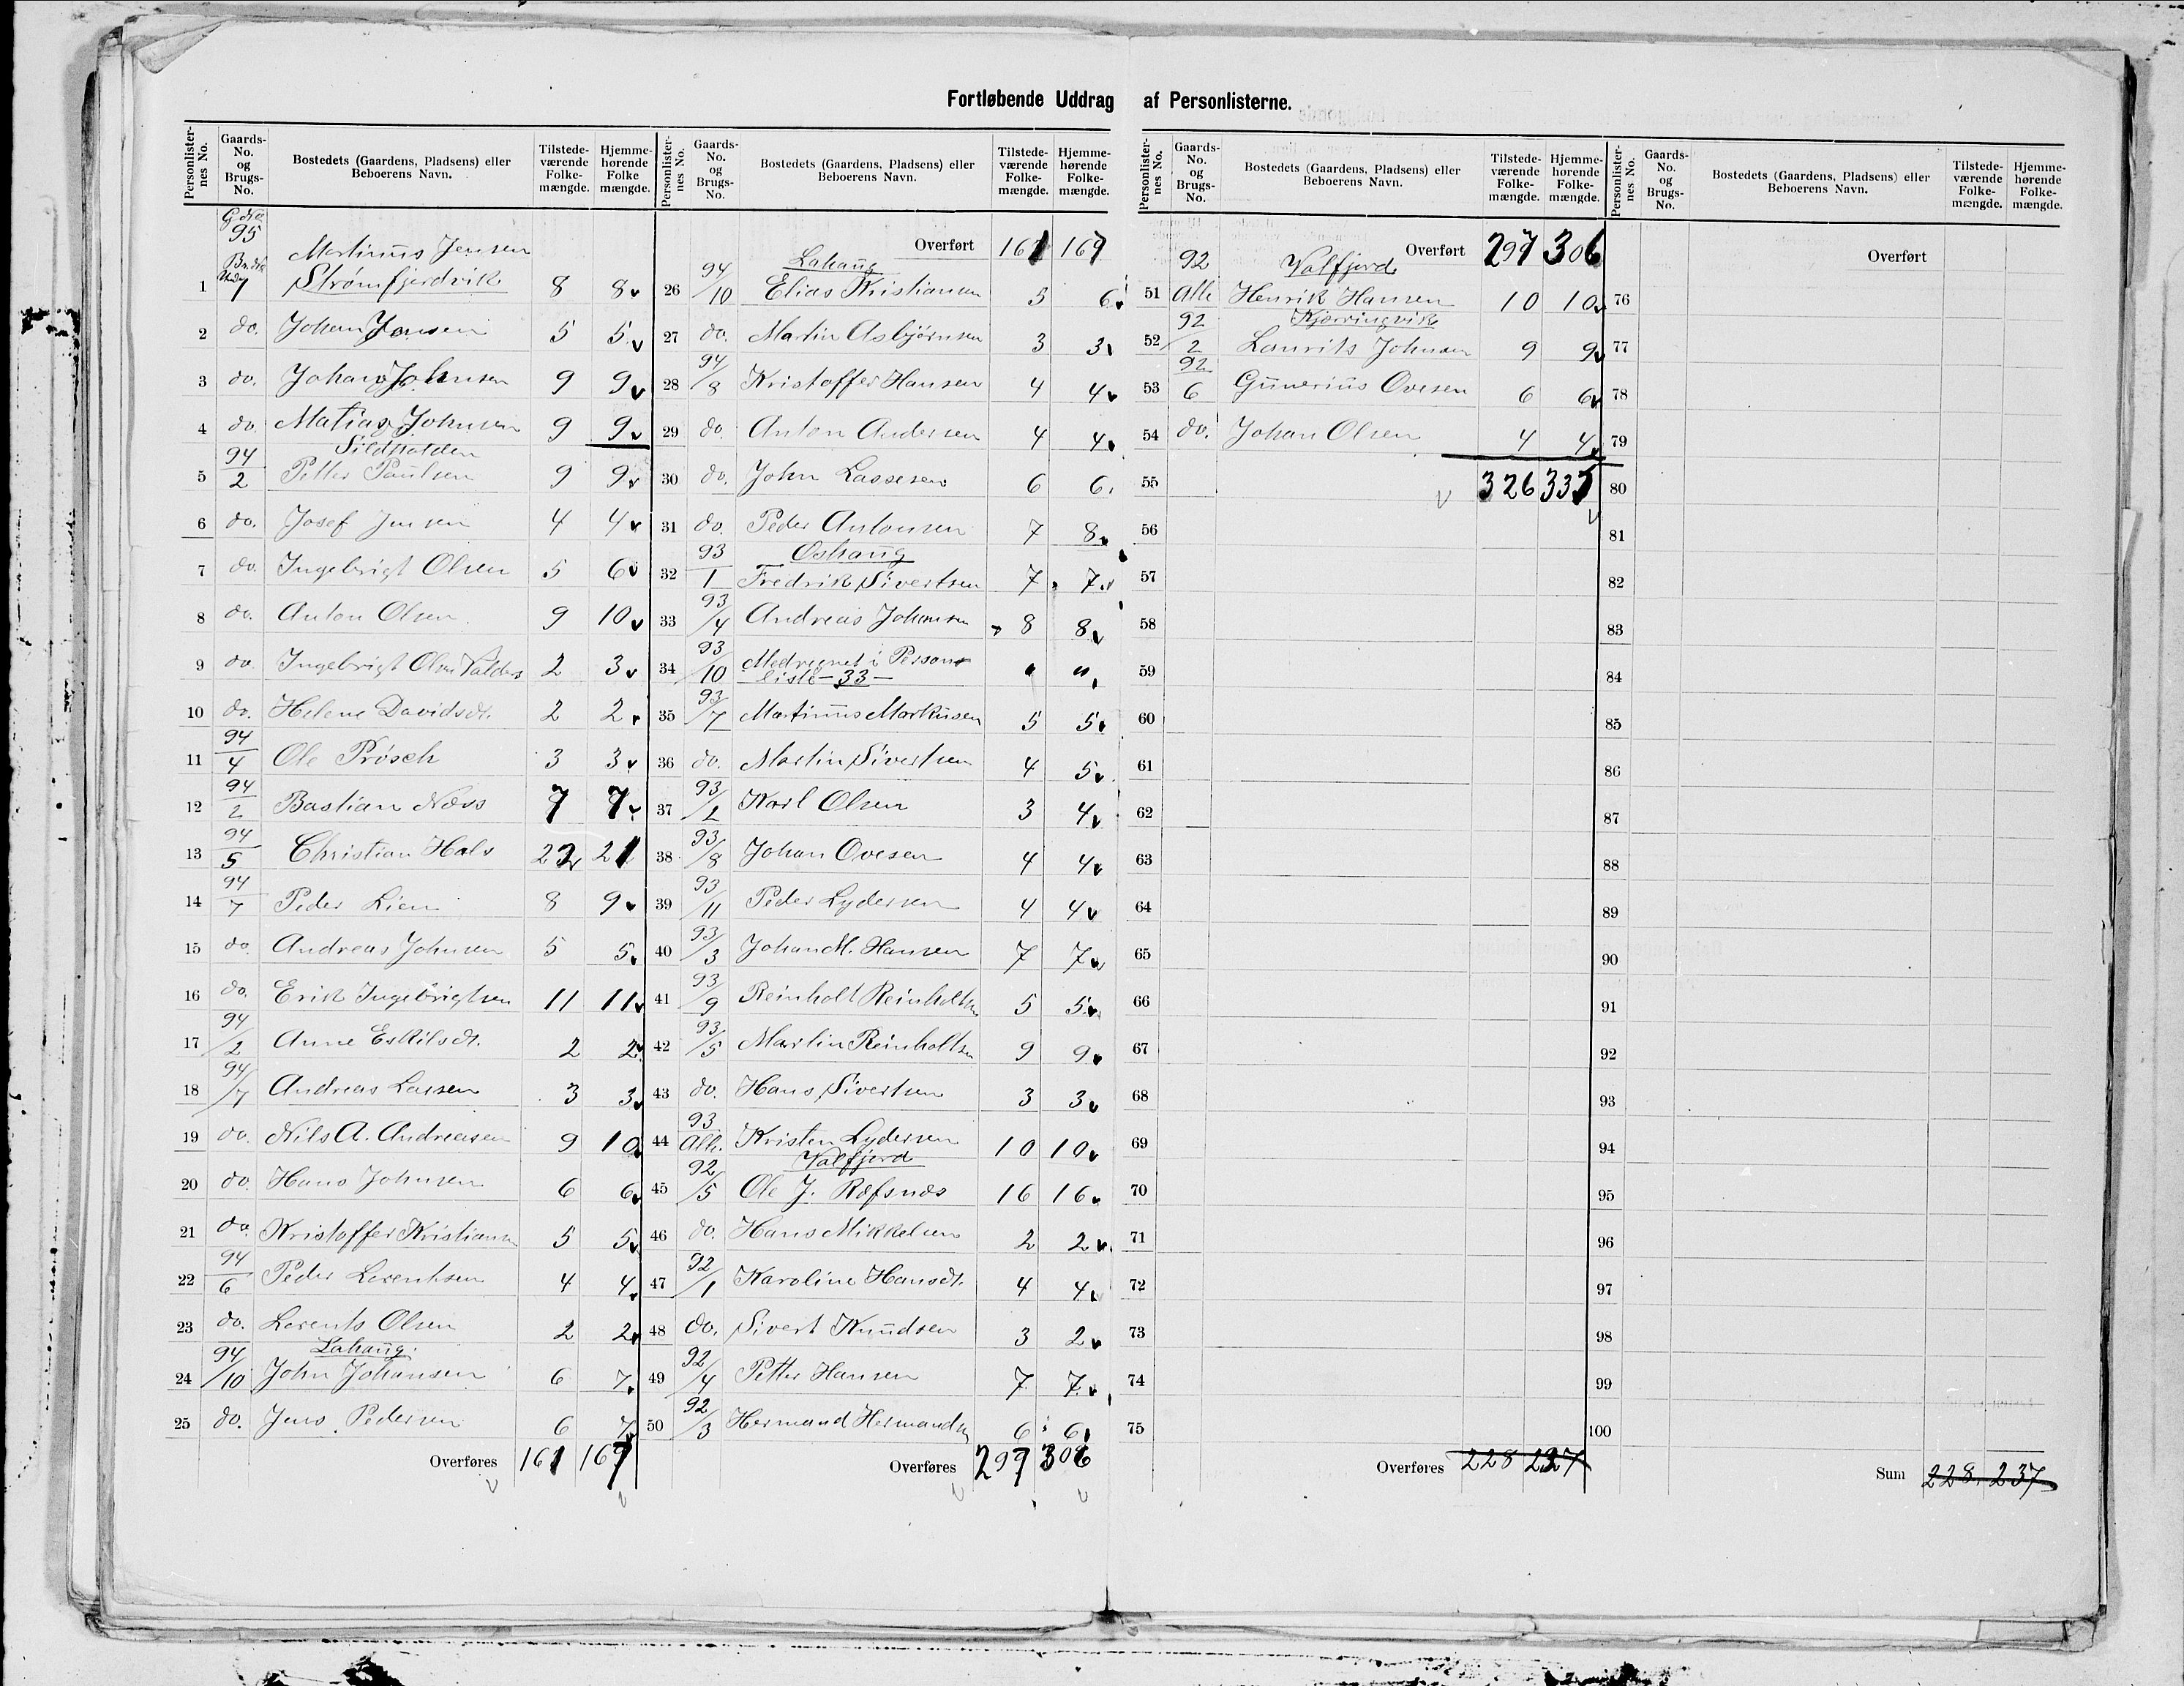 Fortløbende Uddrag af Personlisterne.
Personlister-nes No. Gaards-No. og Brugs-No. Bostedets (Gaardens, Pladsens) eller Beboerens Navn. Tilstede-værende Folke-mængde. Hjemme-hørende Folke mængde.
G. No. 95
Martinus Jensen
1 Br. No. Strømfjordvik 8 8
2 do. Johan Jensen 5 5
3 do. Johan Johnsen 9 9
4 do. Matias Johnsen 9 9
Sildpolden
5 94/2 Petter Paulsen 9 9
6 do. Josef Jensen 4 4
7 do. Ingebrigt Olsen 5 6
8 do. Anton Olsen 9 10
9 do. Ingebrigt Olsen Valders 2 3
10 do. Helene Davidsdt. 2 2
11 94/4 Ole Prösch 3 3
12 94/2 Bastian Næss 7 7
13 94/5 Christian Hals 22 21
14 94/7 Peder Lien 8 9
15 do. Andreas Johnsen 5 5
16 do. Erik Ingebrigtsen 11 11
17 94/2 Anne Eskilsdt. 2 2
18 94/7 Andreas Larsen 3 3
19 do. Nils A. Andreasen 9 10
20 do. Hans Johnsen 6 6
21 do. Kristoffer Kristiansen 5 5
22 94/6 Peder Lorentsen 4 4
23 do. Lorents Olsen 2 2
Lahaug.
24 94/10 John Johansen 6 7
25 do. Jens Pedersen 6 7
Overføres 161 167
Personlister-nes No. Gaards-No. og Brugs-No. Bostedets (Gaardens, Pladsens) eller Beboerens Navn. Tilstede-værende Folke-mængde. Hjemme-hørende Folke-mængde.
Overført 161 167
Lahaug
26 94/10 Elias Kristiansen 5 6
27 do. Martin Asbjørnsen 3 3
28 94/8 Kristoffer Hansen 4 4
29 do. Anton Andersen 4 4
30 do. John Lassesen 6 6
31 do. Peder Antonsen 7 8
Oshaug
32 93/1 Fredrik Sivertsen 7 7
33 93/4 Andreas Johansen 8 8
34 93/10 Medregnet i Person-
liste - 33 - " "
35 93/7 Martinus Markusen 5 5
36 do. Martin Sivertsen 4 5
37 93/2 Karl Olsen 3 4
38 93/8 Johan Ovesen 4 4
39 93/11 Peder Lydersen 4 4
40 93/3 Johan M. Hansen 7 7
41 93/9 Reinholt Reinholtsen 5 5
42 93/5 Martin Reinholtsen 9 9
43 do. Hans Sivertsen 3 3
44 93 Alh. Kristen Lydersen 10 10
Valfjord
45 92/5 Ole J. Refsnes 16 16
46 do. Hans Mikkelsen 2 2
47 92/1 Karoline Hansdt. 4 4
48 do. Sivert Knudsen 3 2
49 92/4 Petter Hansen 7 7
50 92/3 Hermand Hermandsen 6 6
Overføres 297 306
Personlister-nes No. Gaards-No. og Brugs-No. Bostedets (Gaardens, Pladsens) eller Beboerens Navn. Tilstede-værende Folke-mængde. Hjemme-hørende Folke-mængde.
Overført 297 306
92 Valfjord
51 Alh Henrik Hansen 10 10
Kjerringvik
52 92/2 Laurits Johnsen 9 9
53 92/6 Gunerius Ovesen 6 6
54 do. Johan Olsen 4 4
55 326 335
56
57
58
59
60
61
62
63
64
65
66
67
68
69
70
71
72
73
74
75
Overføres 228 237
Personlister-nes No. Gaards-No. og Brugs-No. Bostedets (Gaardens, Pladsens) eller Beboerens Navn. Tilstede-værende Folke-mængde. Hjemme-hørende Folke-mængde.
Overført
76
77
78
79
80
81
82
83
84
85
86
87
88
89
90
91
92
93
94
95
96
97
98
99
100
Sum 228. 237